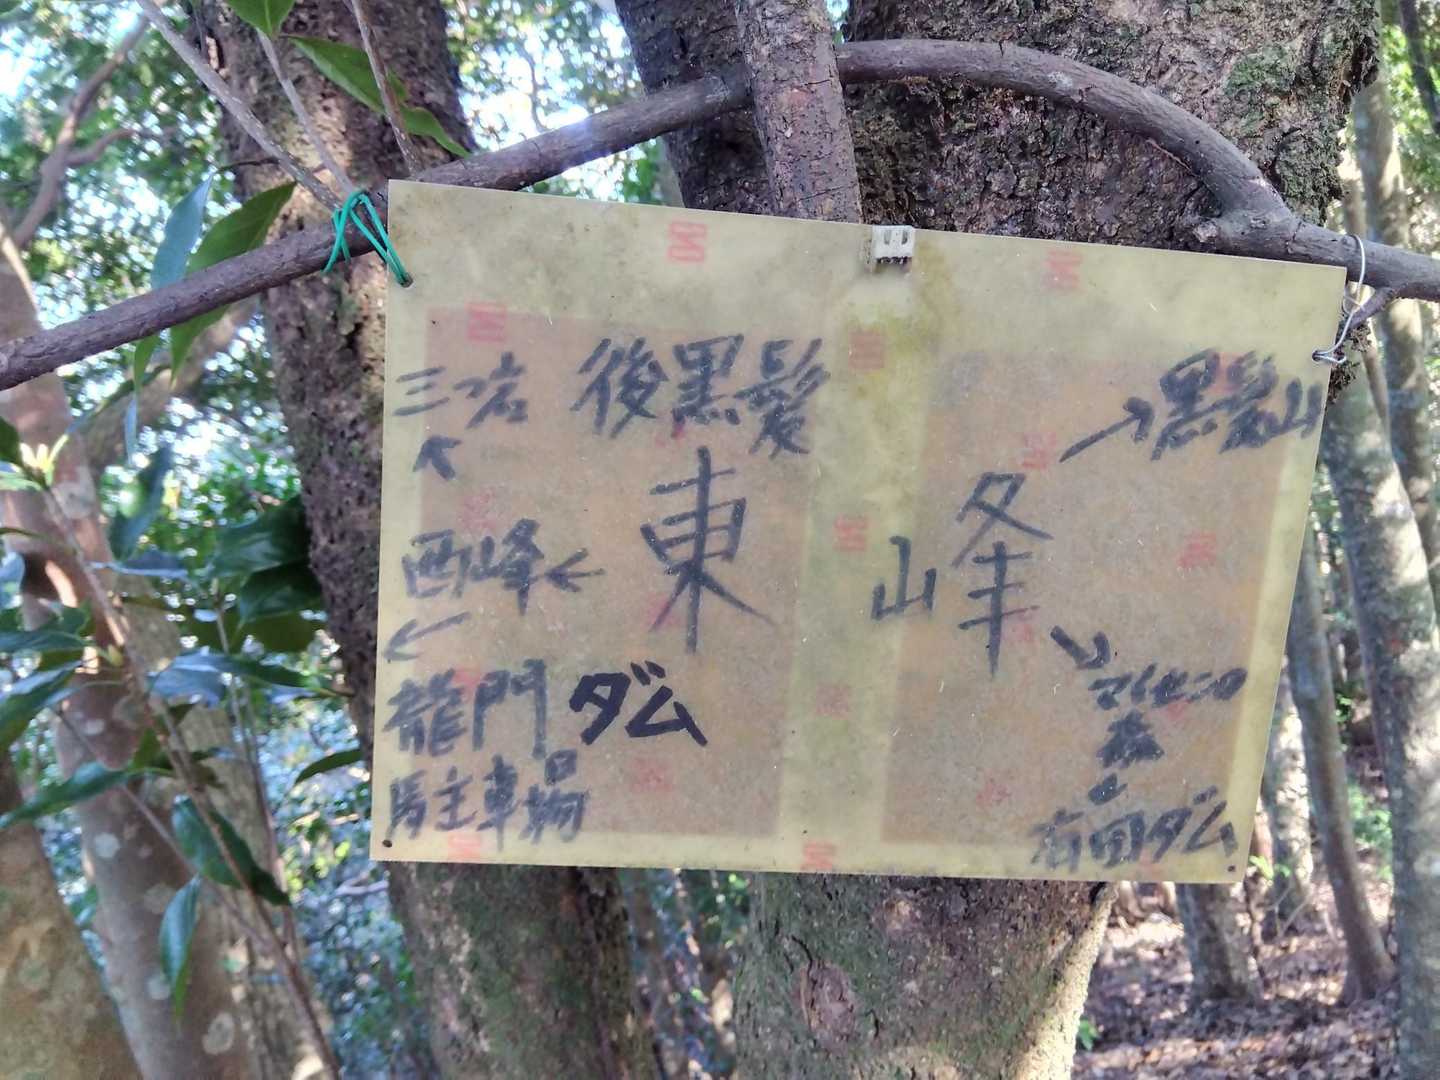 三つ岩
後黒髪
↗黒髪山
↖
東峰
西峰←
←
龍門ダム
駐車場
↘
マイセンロ
森
と
有田ダム